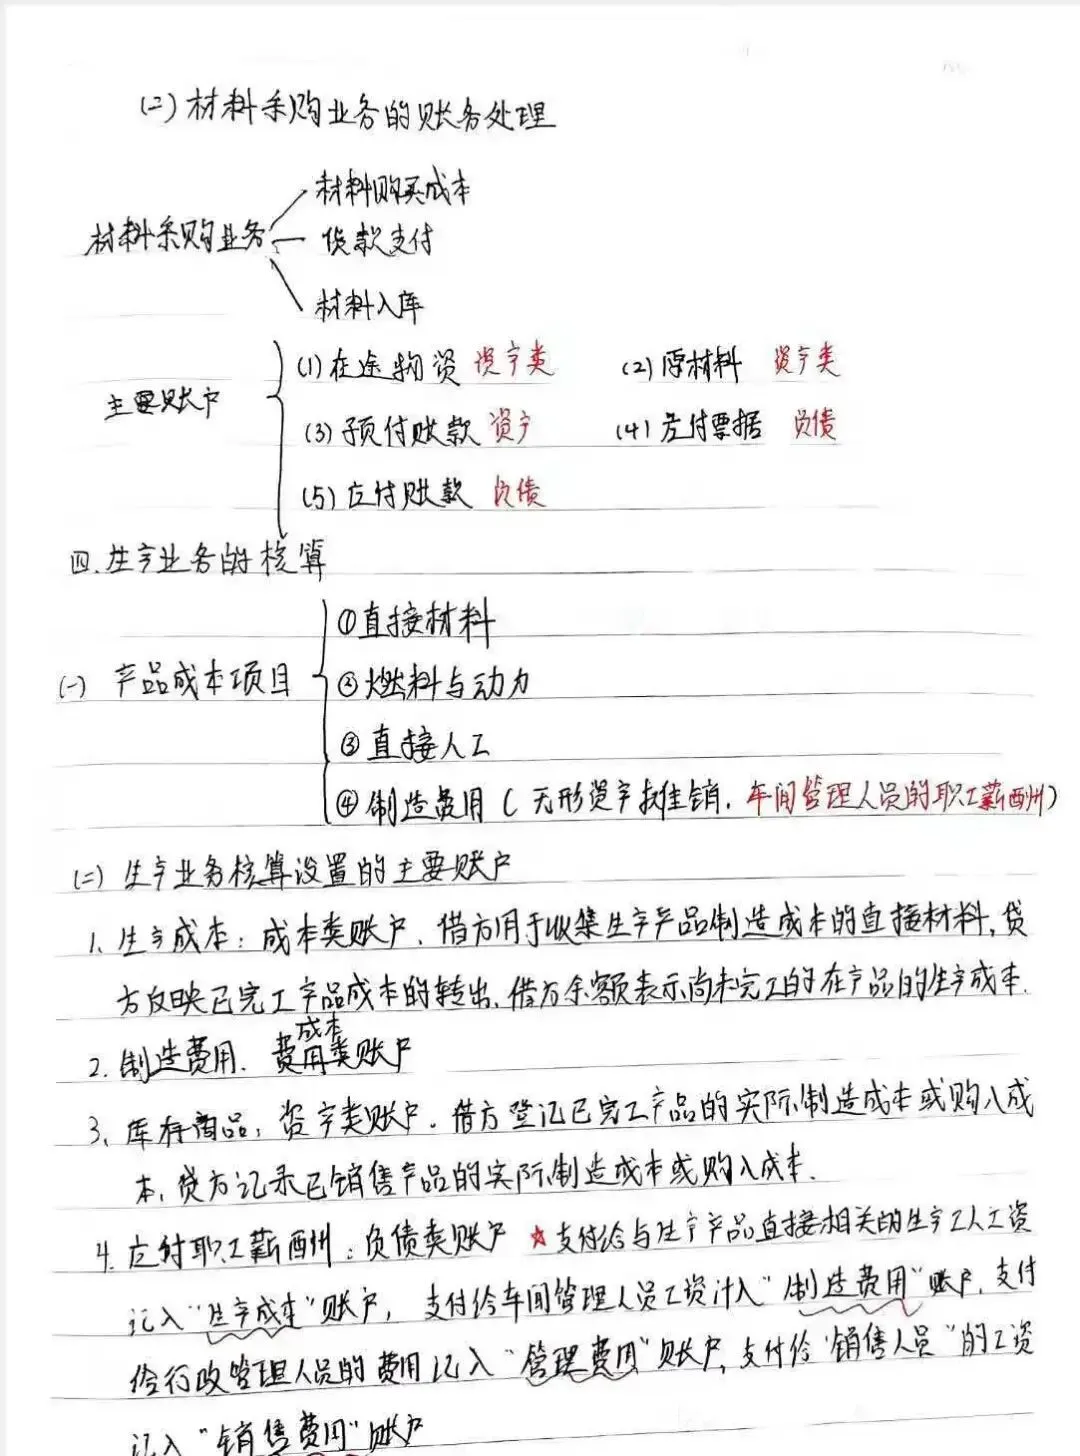 (二) 材料采购业务的账务处理
材料购买成本
材料采购业务 货款支付
材料入库
主要账户
(1) 在途物资 资产类 (2) 原材料 资产类
(3) 预付账款 资产 (4) 应付票据 负债
(5) 应付账款 负债
四. 生产业务的核算
①直接材料
(一) 产品成本项目 ②燃料与动力
③直接人工
④制造费用 ( 无形资产摊销, 车间管理人员的职工薪酬)
(二) 生产业务核算设置的主要账户
1. 生产成本: 成本类账户, 借方用于收集生产产品制造成本的直接材料, 贷
方反映已完工产品成本的转出, 借方余额表示尚未完工的在产品的生产成本.
成本
2. 制造费用. 费用类账户
3. 库存商品: 资产类账户. 借方登记已完工产品的实际制造成本或购入成
本, 贷方记录已销售产品的实际制造成本或购入成本.
4. 应付职工薪酬: 负债类账户 ☆支付给与生产产品直接相关的生产工人工资
记入“生产成本”账户, 支付给车间管理人员工资计入“制造费用”账户, 支付
给行政管理人员的费用记入“管理费用”账户, 支付给“销售人员”的工资
记入“销售费用”账户